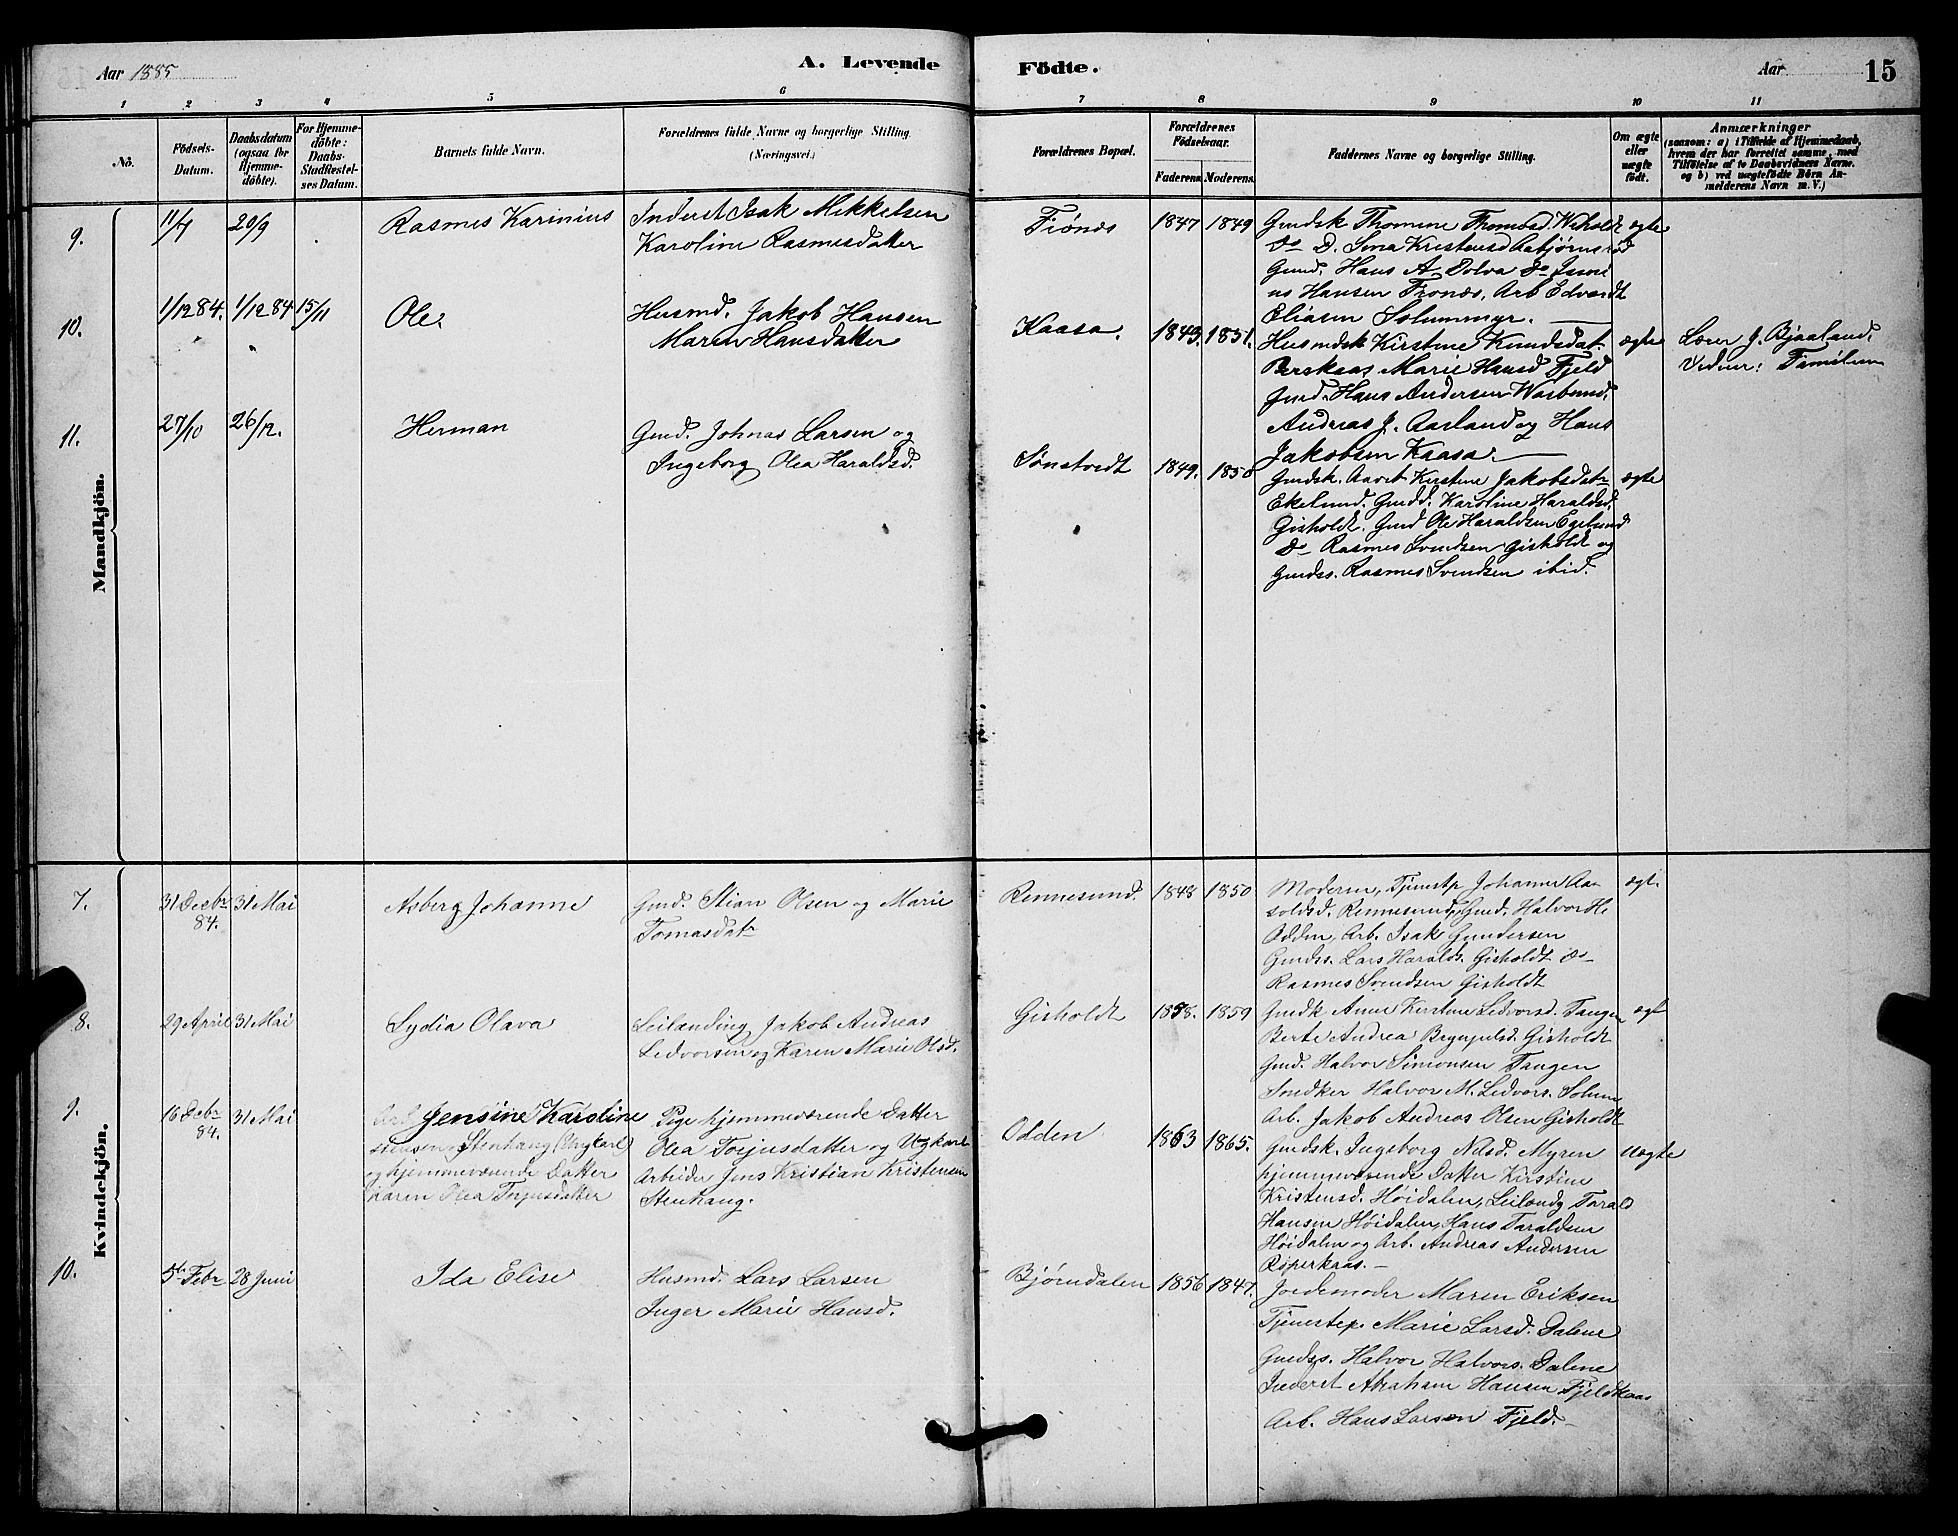 Aar 1885
A. Levende
Födte.
Aar
15
1 2 3 4 5 6 7 8 9 10 11
No.
Födsels-
Datum.
Daabsdatum
(ogsaa for
Hjemme-
döbte).
For Hjemme-
döbte:
Daabs-
Stadfæstel-
ses Datum.
Barnets fulde Navn.
Forældrenes fulde Navne og borgerlige Stilling
(Næringsvei.)
Forældrenes Bopæl.
Forældrenes
Födselsaar.
Faderens. Moderens.
Faddernes Navne og borgerlige Stilling.
Om ægte
eller
uægte
födt.
Anmærkninger
(saasom: a) i Tilfælde af Hjemmedaab,
hvem der har forrettet samme, med
Tilföielse af to Daabsvidners Navne,
og b) ved uægtefödte Börn An-
melderens Navn m. V.)
Mandkjön.
9.
11/4
20/9
Rasmes Karinius
Inderst Isak Mikkelsen
Karoline Rasmesdatter
Fiönes
1847
1849
Gmdsk Thomine Thomasd. Wiholdt
Do D. Sina Kristensd
Gmd. Hans A. Dolva Do
us Hansen Fronæs, Arb Edvardt
Eliasen Solummyr.
ægte
10.
1/12 84.
1/12 84
15/11
Ole.
Husmd. Jakob Hansen
Maren Hansdatter
Kaasa.
1843.
1851.
Husmdsk Kirstine Knudsdat.
Marie Hansd Fjeld
Gmd. Hans Andersen
Andreas J. Aarland og Hans
Jakobsen Kaasa.
ægte
Lærer J. Bjaaland.
Vidner: Familien
11.
27/10
26/12.
Herman
Gmd. Johnas Larsen og
Ingeborg Olea Haraldsd.
Sönstvedt
1849.
1850
Gmdsk. Kirstine Jakobsdatr
Ekelund. Gmdd. Karoline Haraldsd.
Gisholdt. Gmd Ole Haraldsen Egelund
Do Rasmes Svendsen Gisholdt og
Gmdss. Rasmes Svendsen ibid.
ægte
Kvindekjön.
7.
31 Decbr
84.
31 Mai
Asberg Johanne
Gmd. Stian Olsen og Marie
Tomasdatr
Rennesund.
1848
1850
Moderen, Tjenestp Johanne Aa-
soldsd. Rennesund, Gmd. Halvor H.
Odden, Arb. Isak Gundersen
Gmdss. Lars Haralds. Gisholdt Do
Rasmes Svendsen Gisholdt
ægt.
8.
29 April
31 Mai
Lydia Olava
Leilanding Jakob Andreas
Ledvorsen og Karen Marie Olsd.
Gisholdt
1858.
1859
Gmdk Anne Kirstine Ledvorsd. Tangen
Berte Andrea Gisholdt
Gmd. Halvor Simonsen Tangen
Halvor M. Ledvors. Solum
Arb. Jakob Andreas Olsen Gisholdt
ægt
9.
16 Decbr
84.
31 Mai
Arb Jensine Karoline
Stenhaug (Ungkarl)
og hjemmeværende Datter
Karen Olea Torjusdatter
Pige hjemmeværende Datter
Olea Torjusdatter og Ungkarl
Arbeider Jens Kristian Kristensen
Stenhaug.
Odden
1863
1865.
Gmdsk. Ingeborg Nilsd. Myren
hjemmeværende Datter Kirstine
Kristensd. Höidalen, Leilendg Tarald
Hansen Höidalen, Hans Taraldsen
Höidalen og Arb. Andreas Andersen
Röperkaas.
Uægte
10.
5te Febr
28 Juni
Ida Elise
Husmd. Lars Larsen
Inger Marie Hansd.
Björndalen
1856
1847.
Jordemoder Maren Eriksen
Tjenestep. Marie Larsd. Dalene
Gmdss. Halvor Halvors. Dalene
Inderst Abraham Hansen Fjeldkaas
Arb. Hans Larsen Fjeld.